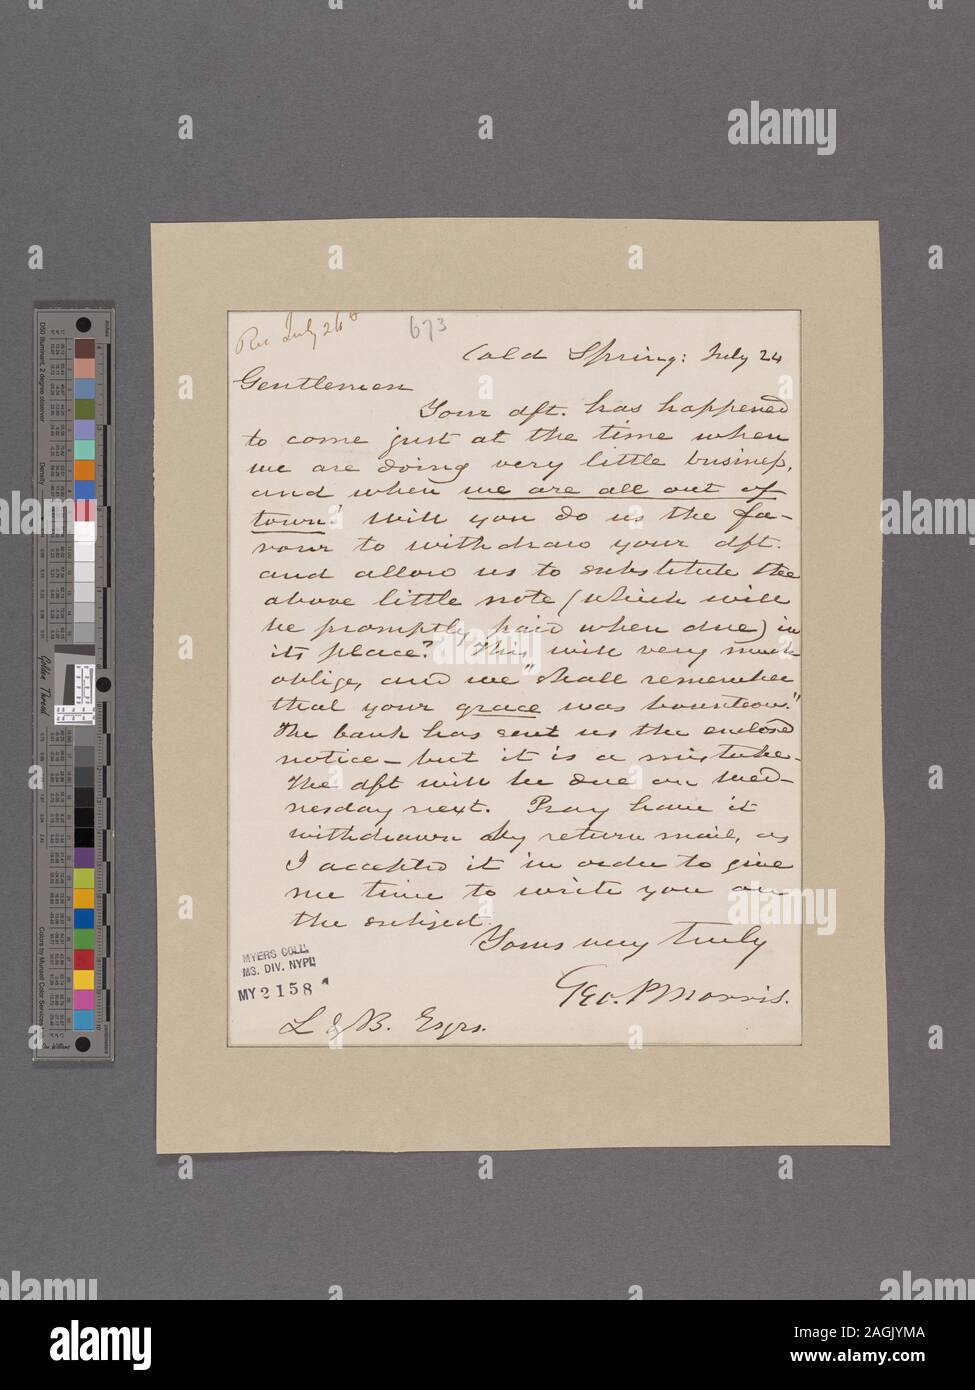 Rec July 26th
673
Cold Spring: July 24
Gentlemen
Your dft. has happened
to come just at the time when
we are doing very little business,
and when we are all out of
town! Will you do us the fa-
vour to withdraw your dft.
and allow us to substitute the
above little note (which will
be promptly paid when due) in
its place? This will very much
oblige, and we "shall remember
that your grace was bounteous."
The bank has sent us the enclosed
notice - but it is a mistake.
The dft will be due on Wed-
nesday next. Pray have it
withdrawn by return mail, as
I accepted it in order to give
me time to write you on
the subject.
Yours very truly
Geo. P Morris.
L & B. Esqrs.
MYERS COLL.
MS. DIV. NYPL
MY 2158
D50 Illuminant, 2 degree observer
Density
Golden Thread
Colors by Munsell Color Services
inches
centimeters
alamy
alamy
Image ID: 2AGJYMA
www.alamy.com